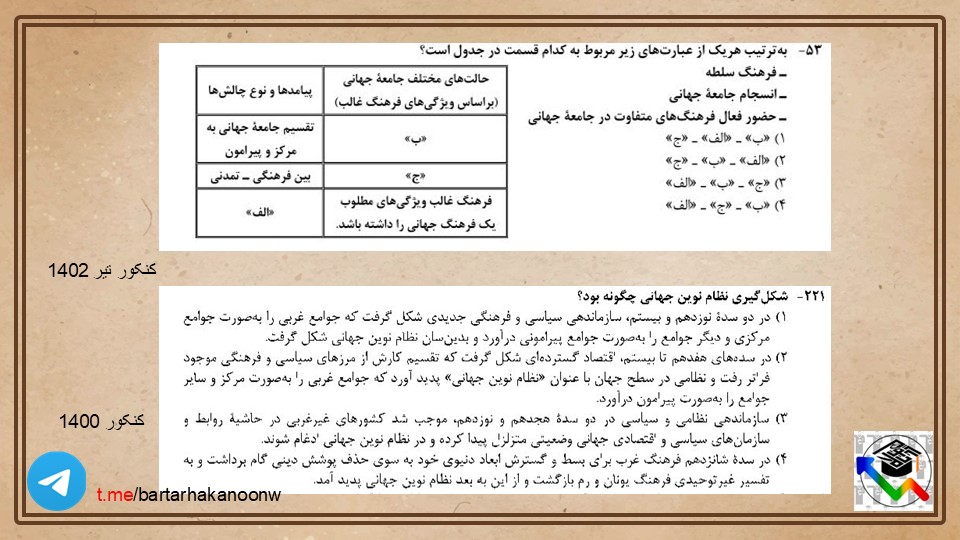 ۵۳- به‌ترتیب هریک از عبارت‌های زیر مربوط به کدام قسمت در جدول است؟
ـ فرهنگ سلطه
ـ انسجام جامعهٔ جهانی
ـ حضور فعال فرهنگ‌های متفاوت در جامعهٔ جهانی
۱) «ب» ـ «الف» ـ «ج»
۲) «الف» ـ «ب» ـ «ج»
۳) «ج» ـ «ب» ـ «الف»
۴) «ب» ـ «ج» ـ «الف»
حالت‌های مختلف جامعهٔ جهانی
(براساس ویژگی‌های فرهنگ غالب)
پیامدها و نوع چالش‌ها
«ب»
تقسیم جامعهٔ جهانی به
مرکز و پیرامون
«ج»
بین فرهنگی ـ تمدنی
فرهنگ غالب ویژگی‌های مطلوب
یک فرهنگ جهانی را داشته باشد.
«الف»
کنکور تیر 1402
۲۲۱- شکل‌گیری نظام نوین جهانی چگونه بود؟
۱) در دو سدهٔ نوزدهم و بیستم، سازماندهی سیاسی و فرهنگی جدیدی شکل گرفت که جوامع غربی را به‌صورت جوامع
مرکزی و دیگر جوامع را به‌صورت جوامع پیرامونی درآورد و بدین‌سان نظام نوین جهانی شکل گرفت.
۲) در سده‌های هفدهم تا بیستم، اقتصاد گسترده‌ای شکل گرفت که تقسیم کارش از مرزهای سیاسی و فرهنگی موجود
فراتر رفت و نظامی در سطح جهان با عنوان «نظام نوین جهانی» پدید آورد که جوامع غربی را به‌صورت مرکز و سایر
جوامع را به‌صورت پیرامون درآورد.
۳) سازماندهی نظامی و سیاسی در دو سدهٔ هجدهم و نوزدهم، موجب شد کشورهای غیرغربی در حاشیهٔ روابط و
سازمان‌های سیاسی و اقتصادی جهانی وضعیتی متزلزل پیدا کرده و در نظام نوین جهانی ادغام شوند.
۴) در سدهٔ شانزدهم فرهنگ غرب برای بسط و گسترش ابعاد دنیوی خود به سوی حذف پوشش دینی گام برداشت و به
تفسیر غیرتوحیدی فرهنگ یونان و رم بازگشت و از این به بعد نظام نوین جهانی پدید آمد.
کنکور 1400
t.me/bartarhakanoonw